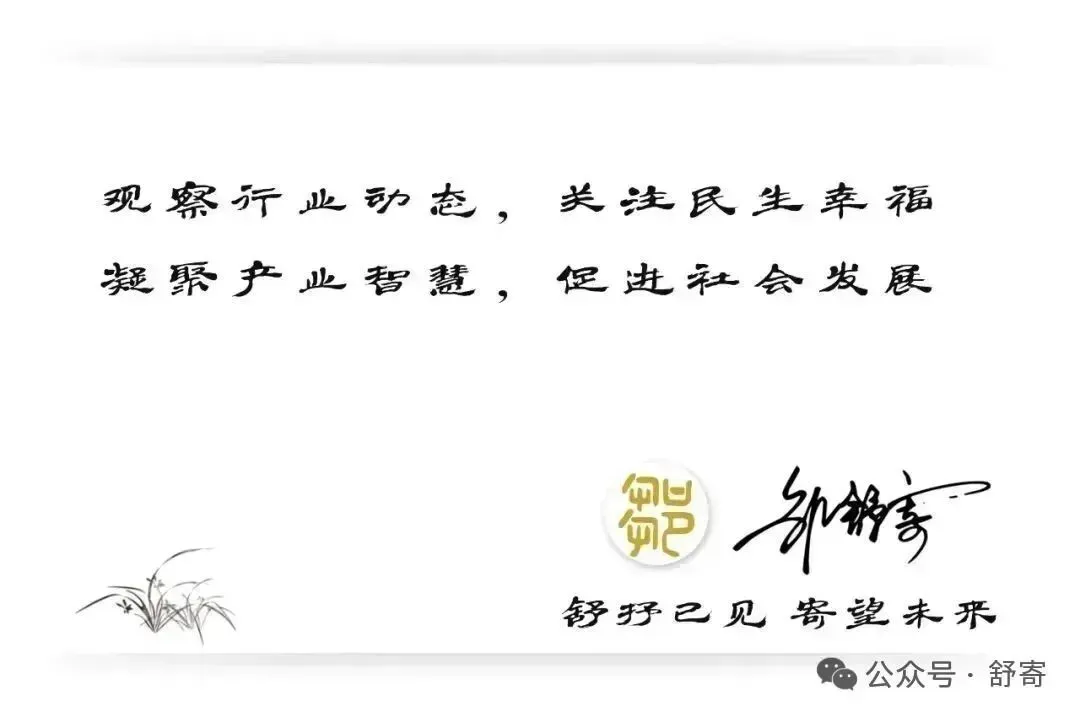 观察行业动态，关注民生幸福
凝聚产业智慧，促进社会发展
鄒
邹舒寄
舒抒己见 寄望未来
公众号 · 舒寄